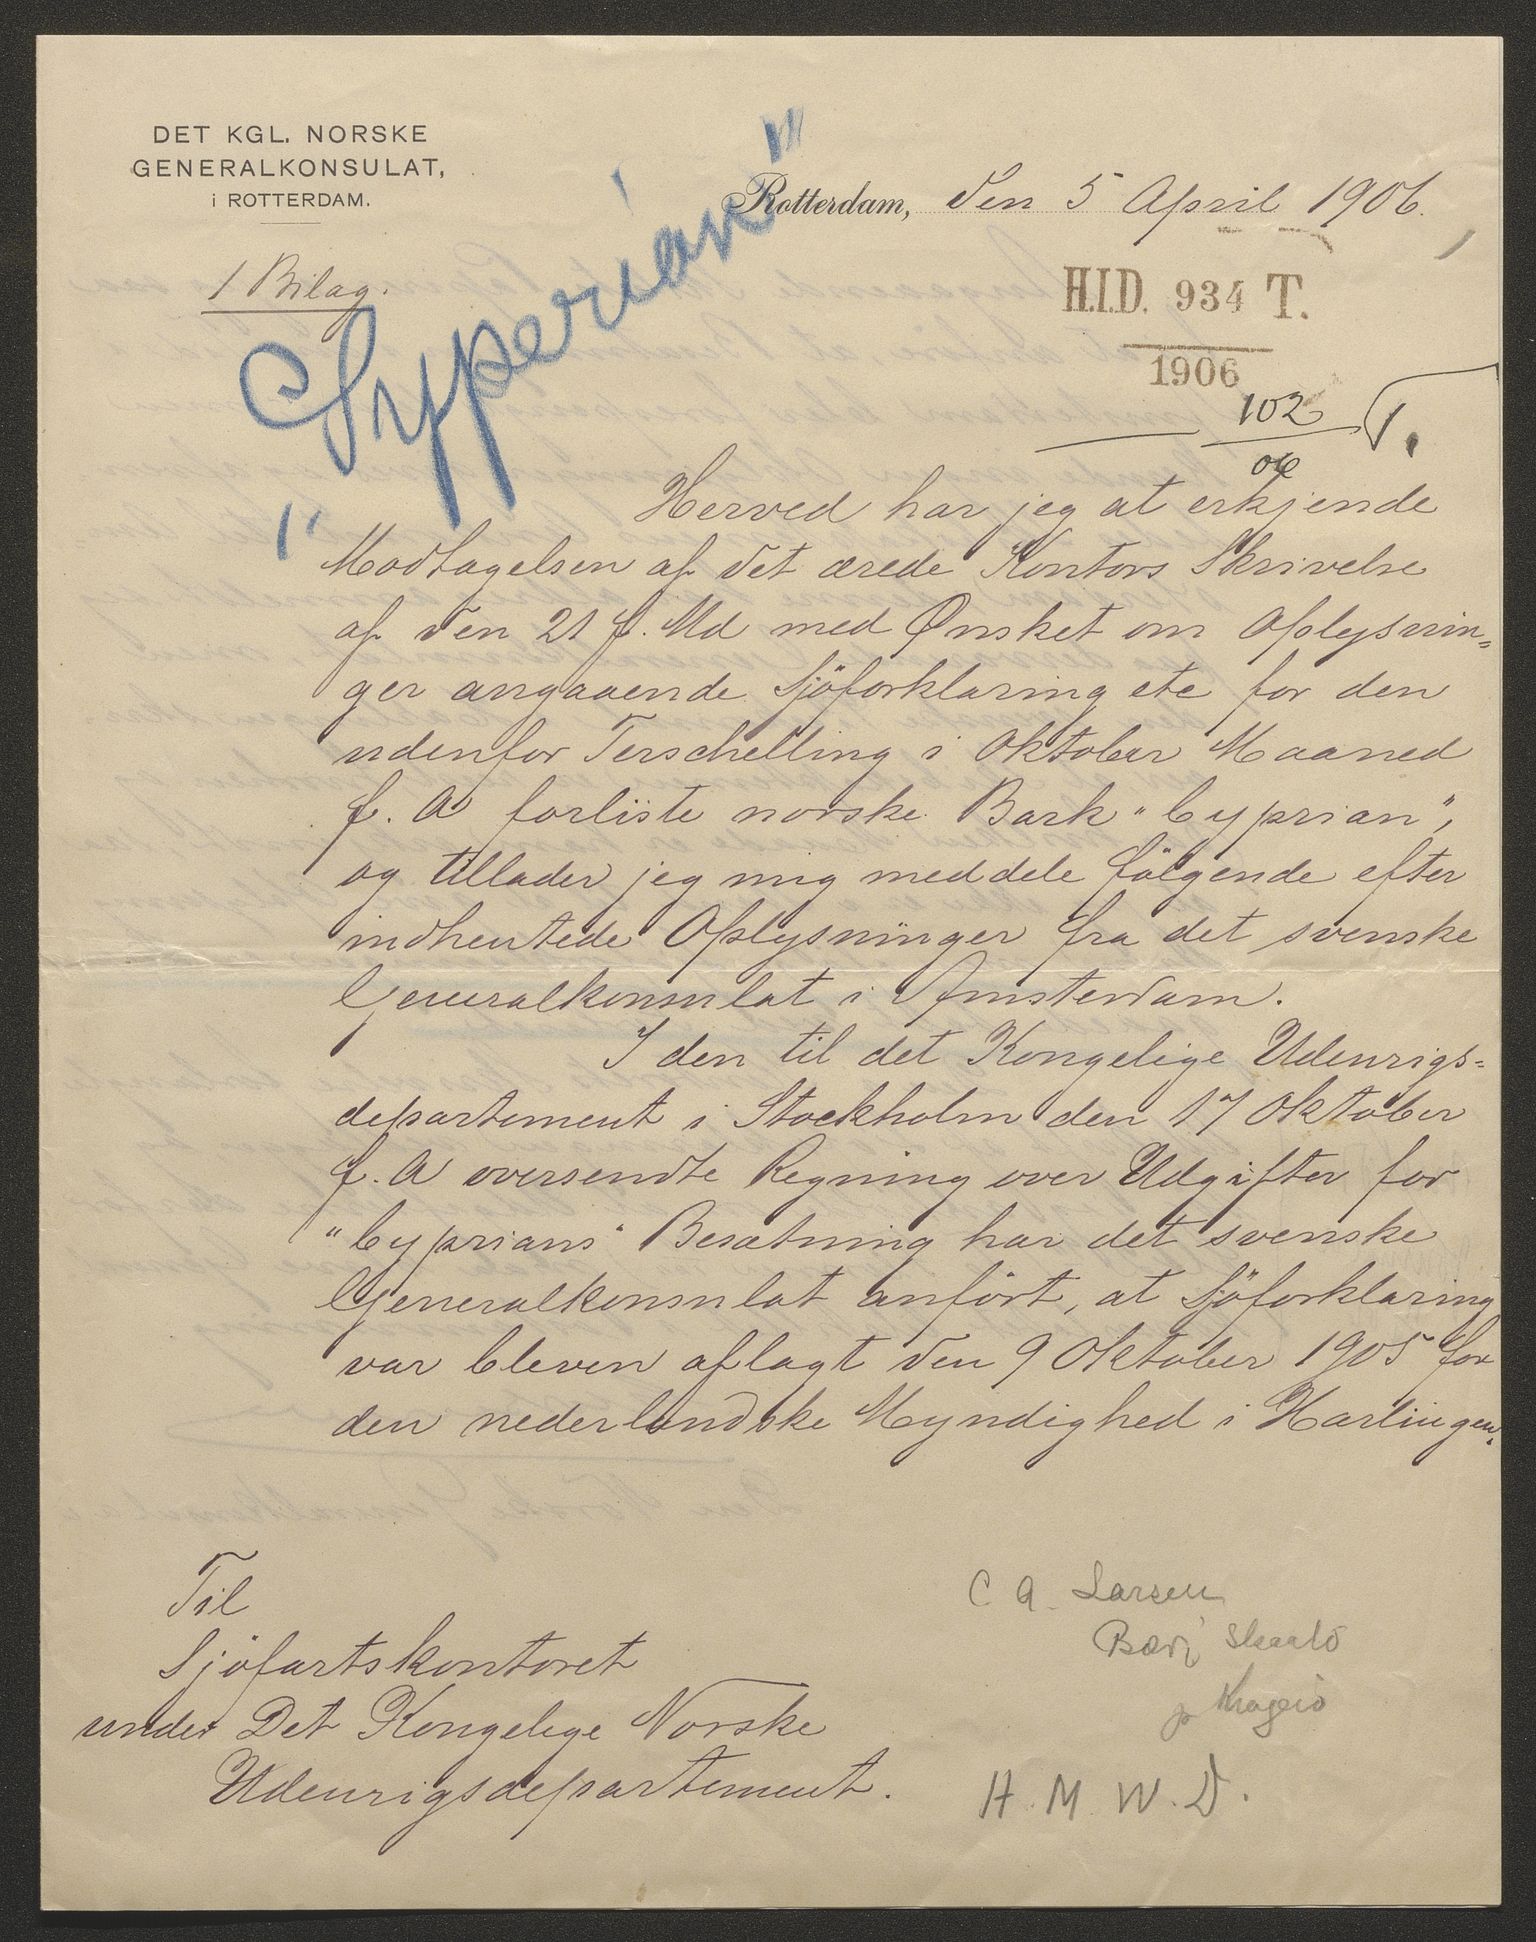 DET KGL. NORSKE
GENERALKONSULAT,
i ROTTERDAM.
Rotterdam, den 5 April 1906.
1 Bilag.
"Cyperian"
H.I.D. 934 T.
1906
102
06
Herved har jeg at erkjende
Modtagelsen af det ærede Kontors Skrivelse
af den 21 f. Md med Ønsket om Oplysnin=
ger angaaende Sjöforklaring etc for den
udenfor Terschelling i Oktober Maaned
f. A forliste norske Bark "Cyprian",
og tillader jeg mig meddele fölgende efter
indhentede Oplysninger fra det svenske
Generalkonsulat i Amsterdam.
I den til det Kongelige Udenrigs=
departement i Stockholm den 17 Oktober
f. A oversendte Regning over Udgifter for
"Cyprians" Besætning har det svenske
Generalkonsulat anfört, at Sjöforklaring
var bleven aflagt den 9 Oktober 1905 for
den nederlandske Myndighed i Harlingen.
Til
Sjöfartskontoret
under Det Kongelige Norske
Udenrigsdepartement.
C A Larsen
H. M. W. D.